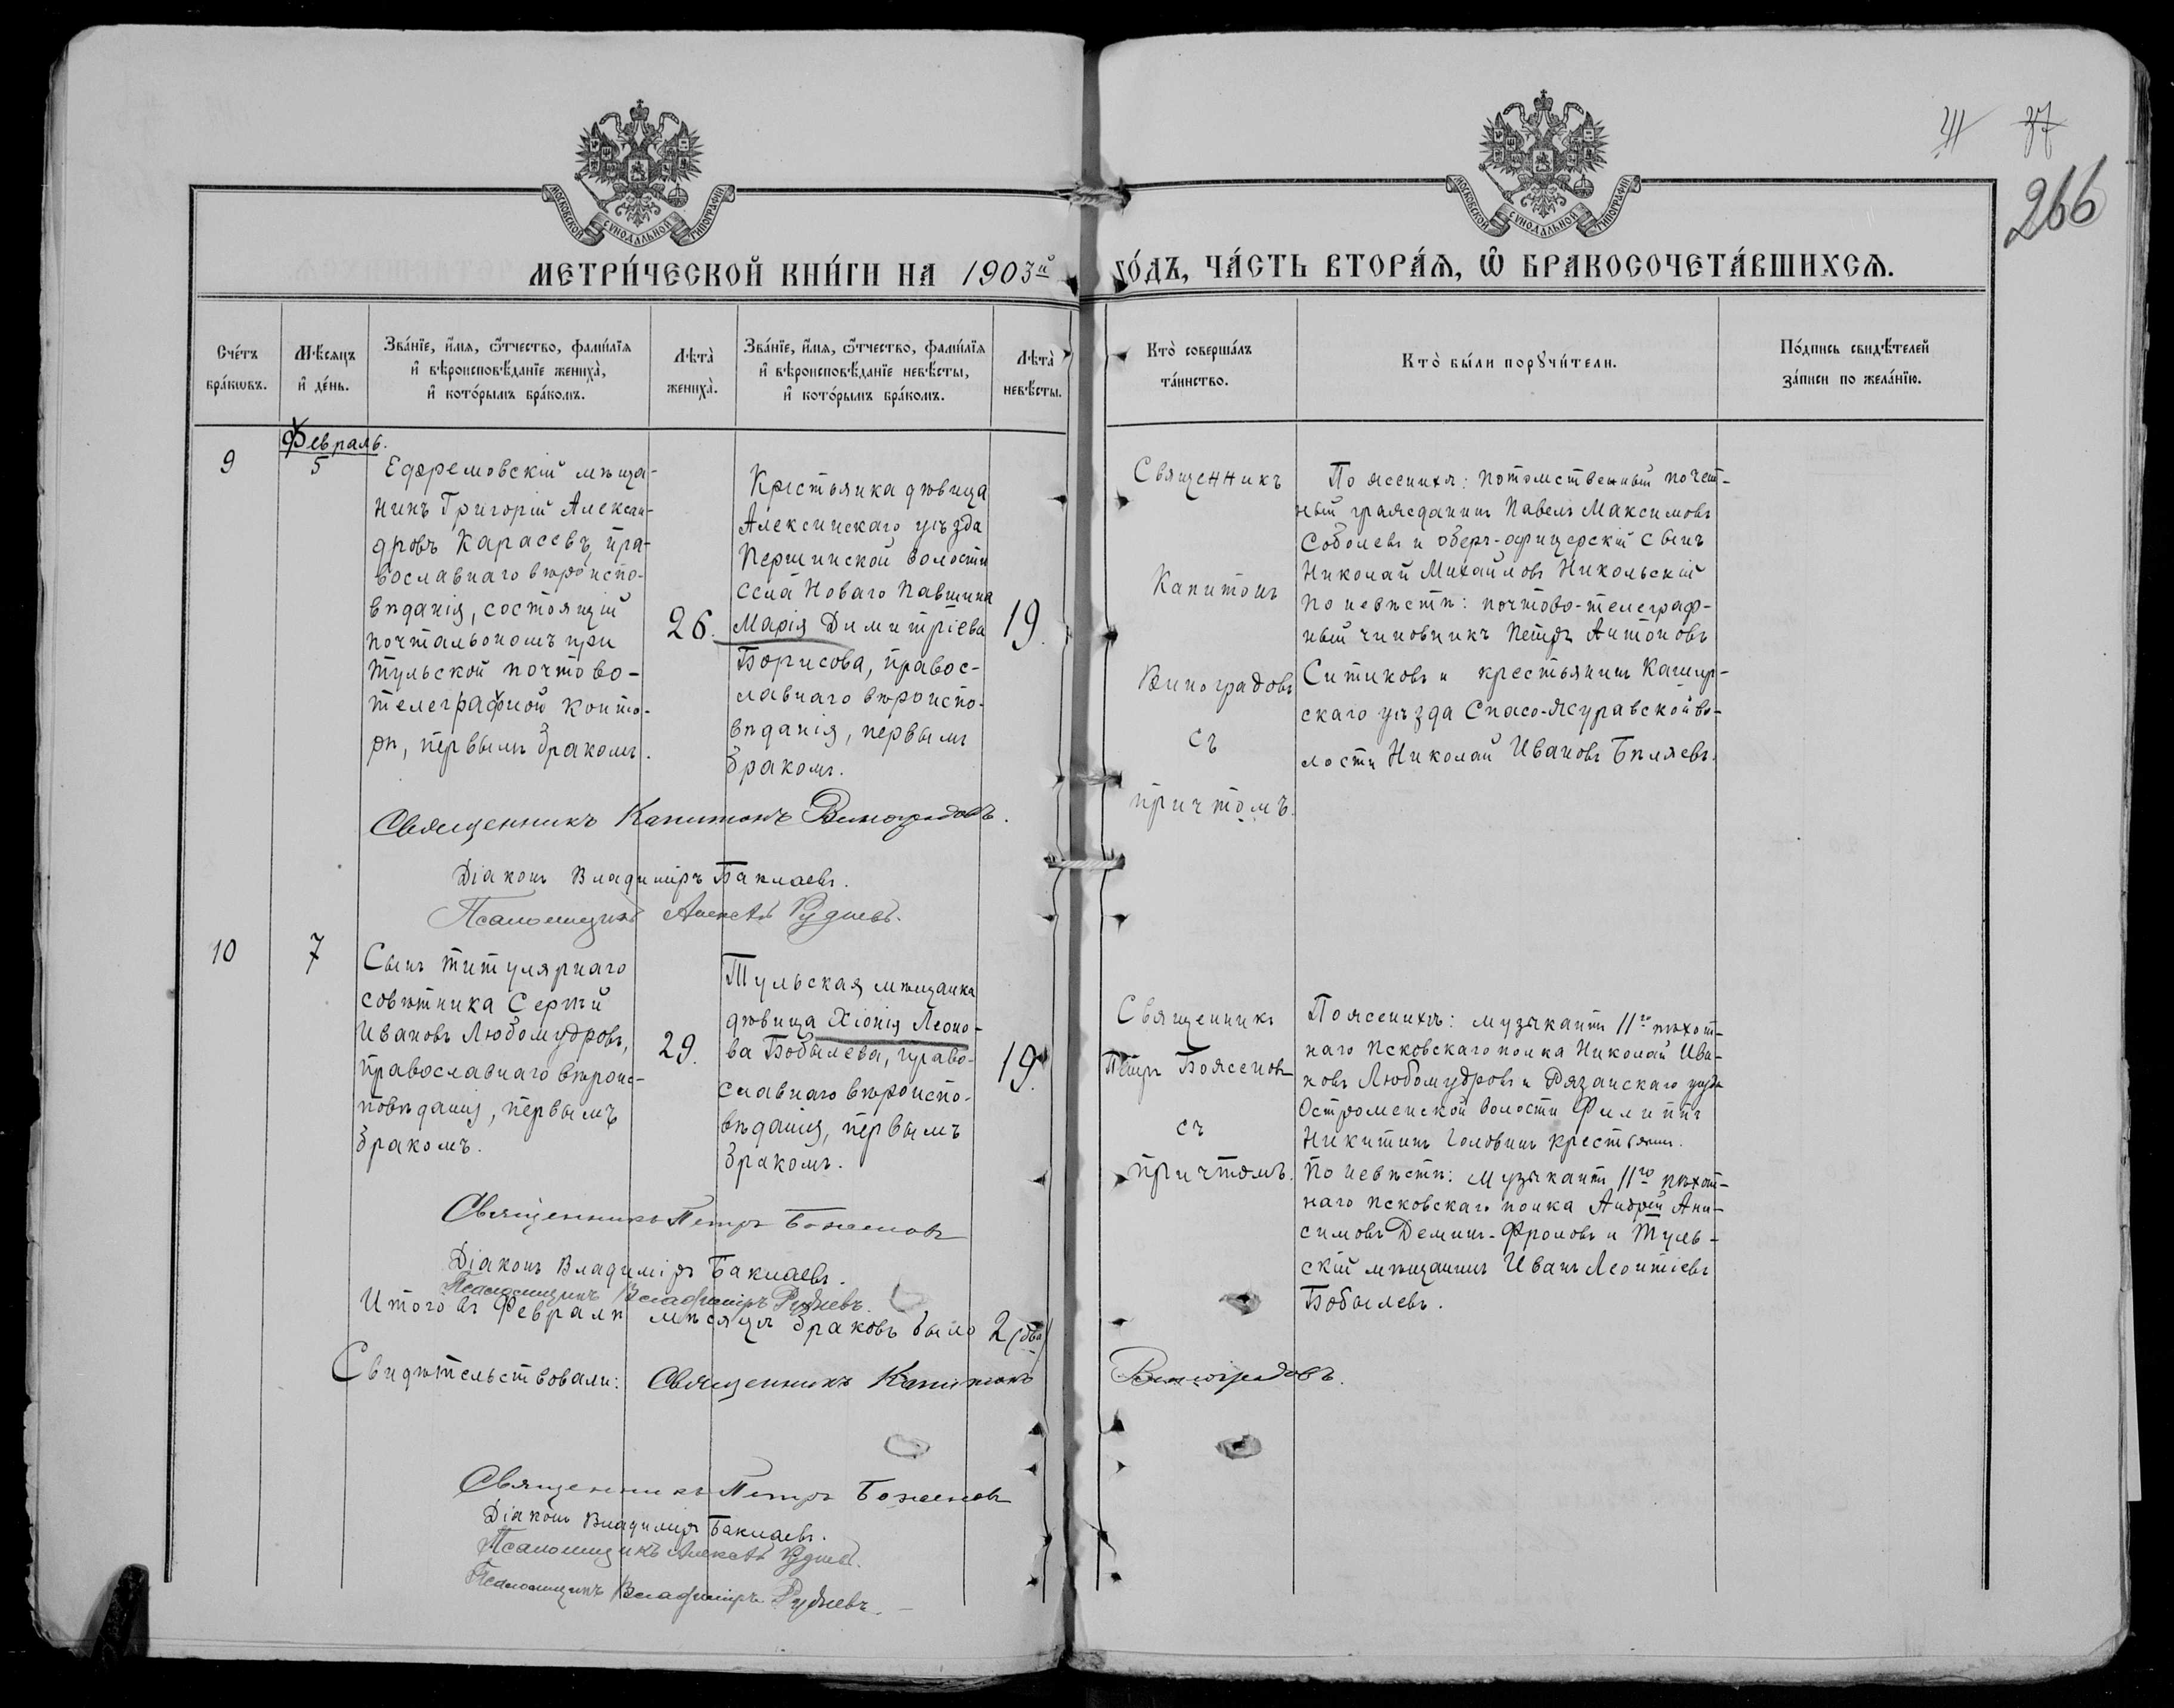 МОСКОВСКОЙ СѴНОДАЛЬНОЙ ТИПОГРАФІИ
МОСКОВСКОЙ СѴНОДАЛЬНОЙ ТИПОГРАФІИ
41 37
266
МЕТРИ́ЧЕСКОЙ КНИ́ГИ НА 1903й го́дъ, ЧА́СТЬ ВТОРА́Я, Ѡ БРАКОСОЧЕТА́ВШИХСЯ.
Сче́тъ
бра́ковъ.
Мѣ́сяцъ
и҆ де́нь.
Зва́нїе, и҆́мя, ѻ҆́тчество, фами́лїя
и҆ вѣроисповѣ́данїе жениха̀,
и҆ кото́рымъ бра́комъ.
Лѣта̀
жениха̀.
Зва́нїе, и҆́мя, ѻ҆́тчество, фами́лїя
и҆ вѣроисповѣ́данїе невѣ́сты,
и҆ кото́рымъ бра́комъ.
Лѣта̀
невѣ́сты.
Кто̀ соверша́лъ
та́инство.
Кто̀ бы́ли порꙋчи́тели.
По́дпись свидѣ́телей
за́писи по жела́нїю.
9
Февраль.
5
Ефремовскій мѣща-
нинъ Григорій Алексан-
дровъ Карасевъ, пра-
вославнаго вѣроиспо-
вѣданія, состоящій
почтальономъ при
Тульской почтово-
телеграфной конто-
рѣ, первымъ бракомъ.
26.
Крестьянка дѣвица
Алексинскаго уѣзда
Першинской волости
села Новаго Павшина
Марія Димитріева
Борисова, правос-
лавнаго вѣроиспо-
вѣданія, первымъ
бракомъ.
19.
Священникъ
Капитонъ
Виноградовъ
съ
причтомъ.
По женихѣ: потомственный почет-
ный гражданинъ Павелъ Максимовъ
Соболевъ и оберъ-офицерскій сынъ
Николай Михайловъ Никольскій
По невѣстѣ: почтово-телеграф-
ный чиновникъ Петръ Антоновъ
Ситиковъ и крестьянинъ Кашир-
скаго уѣзда Спасо-Журавской во-
лости Николай Ивановъ Бѣляевъ.
Священникъ Капитонъ Виноградовъ.
Діаконъ Владиміръ Баклаевъ.
Псаломщикъ Алексѣй Рудневъ.
10
7
Сынъ титулярнаго
совѣтника Сергѣй
Ивановъ Любомудровъ,
православнаго вѣроис-
повѣданія, первымъ
бракомъ.
29.
Тульская мѣщанка
дѣвица Хіонія Леон-
ва Бобылева, право-
славнаго вѣроиспо-
вѣданія, первымъ
бракомъ.
19.
Священникъ
Петръ Боженовъ
съ
причтомъ.
По женихѣ: музыкантъ 11го пѣхот-
наго Псковскаго полка Николай Ива-
новъ Любомудровъ и Рязанскаго уѣзда
Остроменской волости Филиппъ
Никитинъ Головинъ крестьянинъ.
По невѣстѣ: музыкантъ 11го пѣхот-
наго Псковскаго полка Андрей Ани-
симовъ Деминъ-Фроловъ и Туль-
скій мѣщанинъ Иванъ Леонтіевъ
Бобылевъ.
Священникъ Петръ Боженовъ
Діаконъ Владиміръ Баклаевъ.
Псаломщикъ Владиміръ Рудневъ.
Итого въ Февралѣ мѣсяцѣ браковъ было 2 (два)
Свидѣтельствовали: Священникъ Капитонъ Виноградовъ.
Священникъ Петръ Боженовъ
Діаконъ Владиміръ Баклаевъ.
Псаломщикъ Алексѣй Рудневъ.
Псаломщикъ Владиміръ Рудневъ.